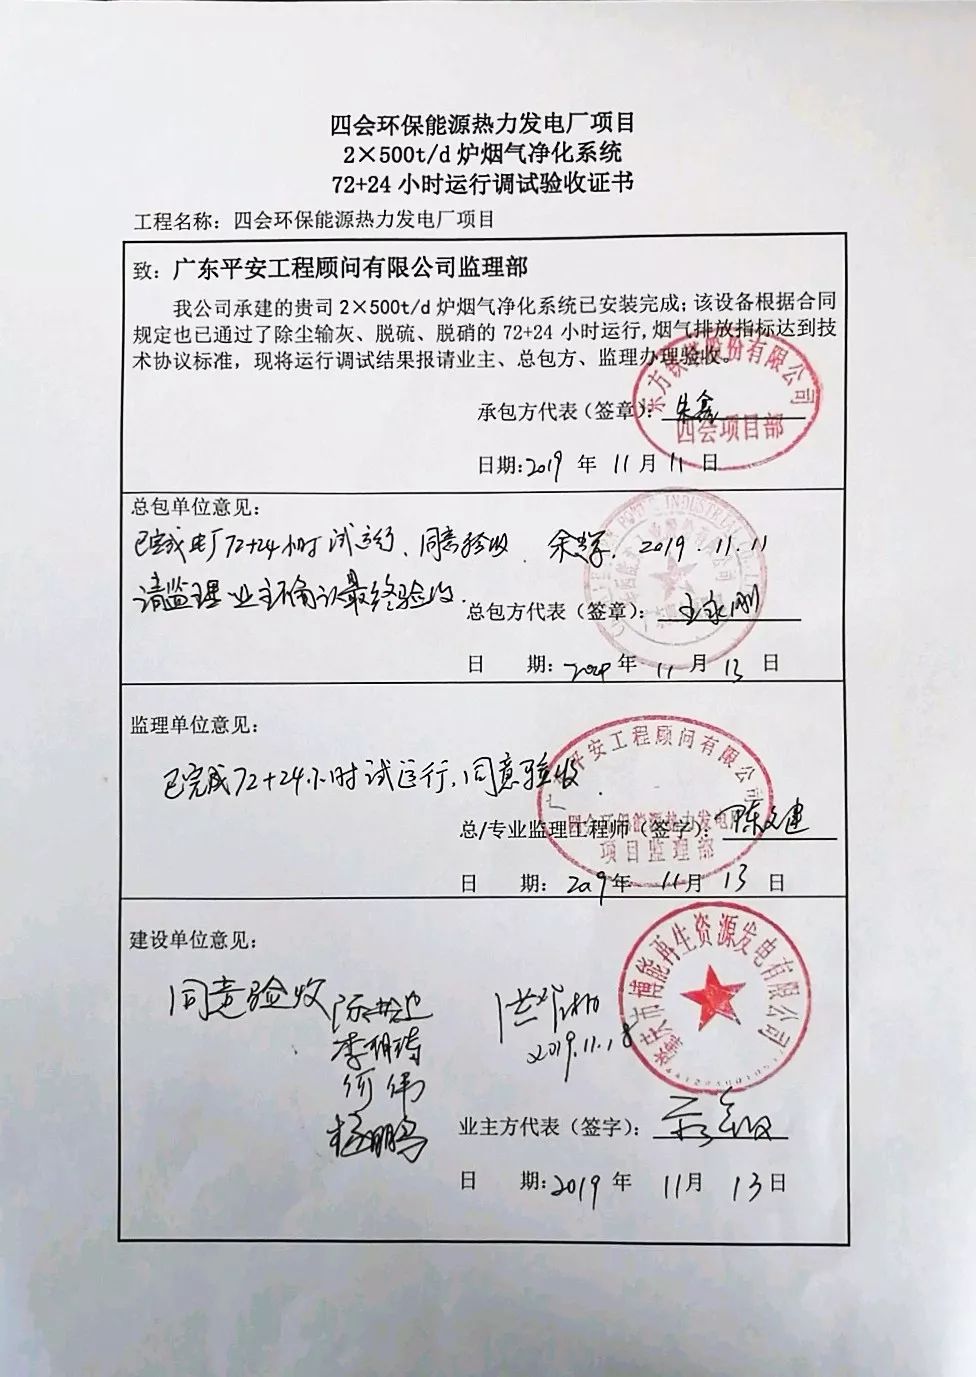 四会环保能源热力发电厂项目
2×500t/d 炉烟气净化系统
72+24 小时运行调试验收证书
工程名称：四会环保能源热力发电厂项目
致：广东平安工程顾问有限公司监理部
我公司承建的贵司 2×500t/d 炉烟气净化系统已安装完成；该设备根据合同
规定也已通过了除尘输灰、脱硫、脱硝的 72+24 小时运行，烟气排放指标达到技
术协议标准，现将运行调试结果报请业主、总包方、监理办理验收。
东方铁塔股份有限公司
四会项目部
承包方代表（签章）：朱鑫
日期：2019 年 11 月 11 日
总包单位意见：
已完成电厂72+24小时试运行、同意验收. 2019.11.11
请监理业主确认最终验收.
总包方代表（签章）：王永刚
日 期： 年 11 月 13 日
监理单位意见：
已完成72+24小时试运行，同意验收
广东平安工程顾问有限公司
四会环保能源热力发电厂
项目监理部
总/专业监理工程师（签字）：陈文建
日 期：2019年 11月 13 日
建设单位意见：
肇庆市博能再生资源发电有限公司
同意验收
2019.11.18
李明涛
何伟
杨鹏鸟
业主方代表（签字）：
日 期：2019 年 11月 13日